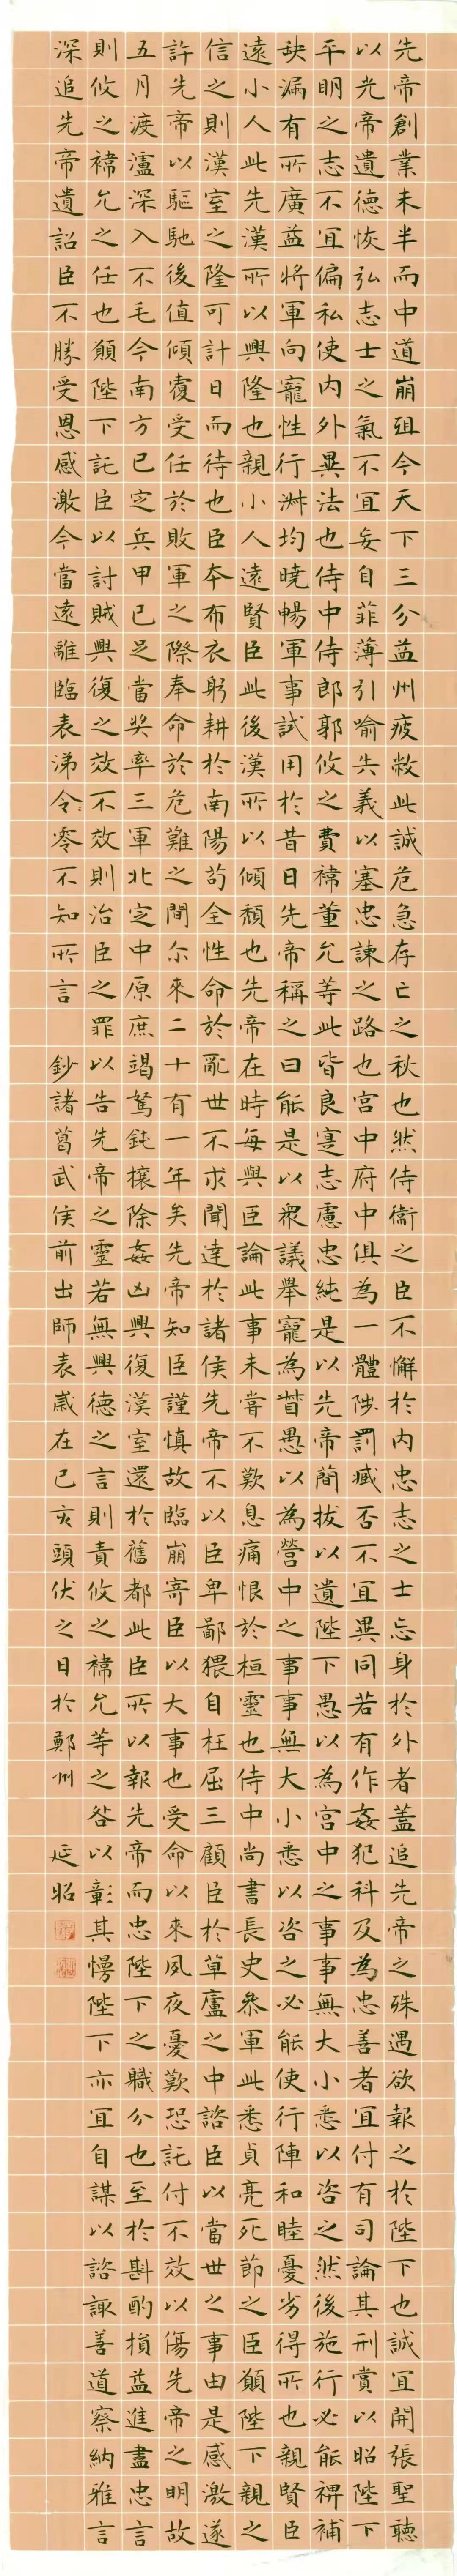 先帝創業未半而中道崩殂今天下三分益州疲敝此誠危急存亡之秋也然侍衞之臣不懈於内忠志之士忘身於外者蓋追先帝之殊遇欲報之於陛下也誠宜開張聖聽
以光帝遺德恢弘志士之氣不宜妄自菲薄引喻失義以塞忠諫之路也宮中府中俱為一體陟罰臧否不宜異同若有作姦犯科及為忠善者宜付有司論其刑賞以昭陛下
平明之志不宜偏私使内外異法也侍中侍郎郭攸之費禕董允等此皆良寔志慮忠純是以先帝簡拔以遺陛下愚以為宮中之事事無大小悉以咨之然後施行必能裨補
缺漏有所廣益將軍向寵性行淑均曉暢軍事試用於昔日先帝稱之曰能是以衆議舉寵為督愚以為營中之事事無大小悉以咨之必能使行陣和睦憂劣得所也親賢臣
遠小人此先漢所以興隆也親小人遠賢臣此後漢所以傾頹也先帝在時每與臣論此事未嘗不歎息痛恨於桓靈也侍中尚書長史叅軍此悉貞亮死節之臣願陛下親之
信之則漢室之隆可計日而待也臣本布衣躬耕於南陽苟全性命於亂世不求聞達於諸侯先帝不以臣卑鄙猥自枉屈三顧臣於草廬之中諮臣以當世之事由是感激遂
許先帝以驅馳後值傾覆受任於敗軍之際奉命於危難之間尔來二十有一年矣先帝知臣謹慎故臨崩寄臣以大事也受命以來夙夜憂歎恐託付不效以傷先帝之明故
五月渡瀘深入不毛今南方已定兵甲已足當奖率三軍北定中原庶竭駑鈍攘除姦凶興復漢室還於舊都此臣所以報先帝而忠陛下之職分也至於斟酌損益進盡忠言
則攸之禕允之任也願陛下託臣以討賊興復之效不效則治臣之罪以告先帝之靈若無興德之言則責攸之禕允等之咎以彰其慢陛下亦宜自謀以諮諏善道察納雅言
深追先帝遺詔臣不勝受恩感激今當遠離臨表涕令零不知所言 鈔諸葛武侯前出師表歲在已亥頭伏之日於鄭州 延昭